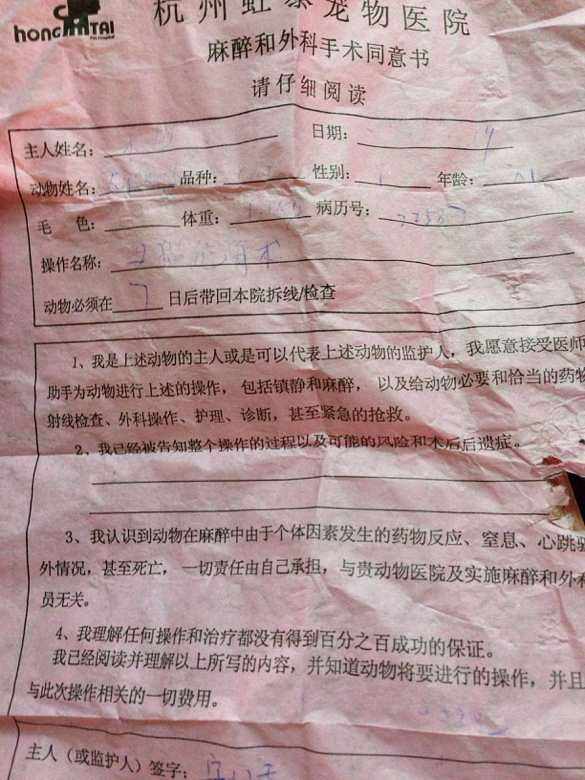 hong TAI
杭州虹泰宠物医院
麻醉和外科手术同意书
请仔细阅读
主人姓名： 日期：
动物姓名： 品种： 性别： 年龄：
毛 色： 体重： 病历号：
操作名称：
动物必须在 7 日后带回本院拆线/检查
1、我是上述动物的主人或是可以代表上述动物的监护人，我愿意接受医师
助手为动物进行上述的操作，包括镇静和麻醉，以及给动物必要和恰当的药物
射线检查、外科操作、护理、诊断，甚至紧急的抢救。
2、我已经被告知整个操作的过程以及可能的风险和术后后遗症。
3、我认识到动物在麻醉中由于个体因素发生的药物反应、窒息、心跳
外情况，甚至死亡，一切责任由自己承担，与贵动物医院及实施麻醉和外科
员无关。
4、我理解任何操作和治疗都没有得到百分之百成功的保证。
我已经阅读并理解以上所写的内容，并知道动物将要进行的操作，并且
与此次操作相关的一切费用。
主人（或监护人）签字：